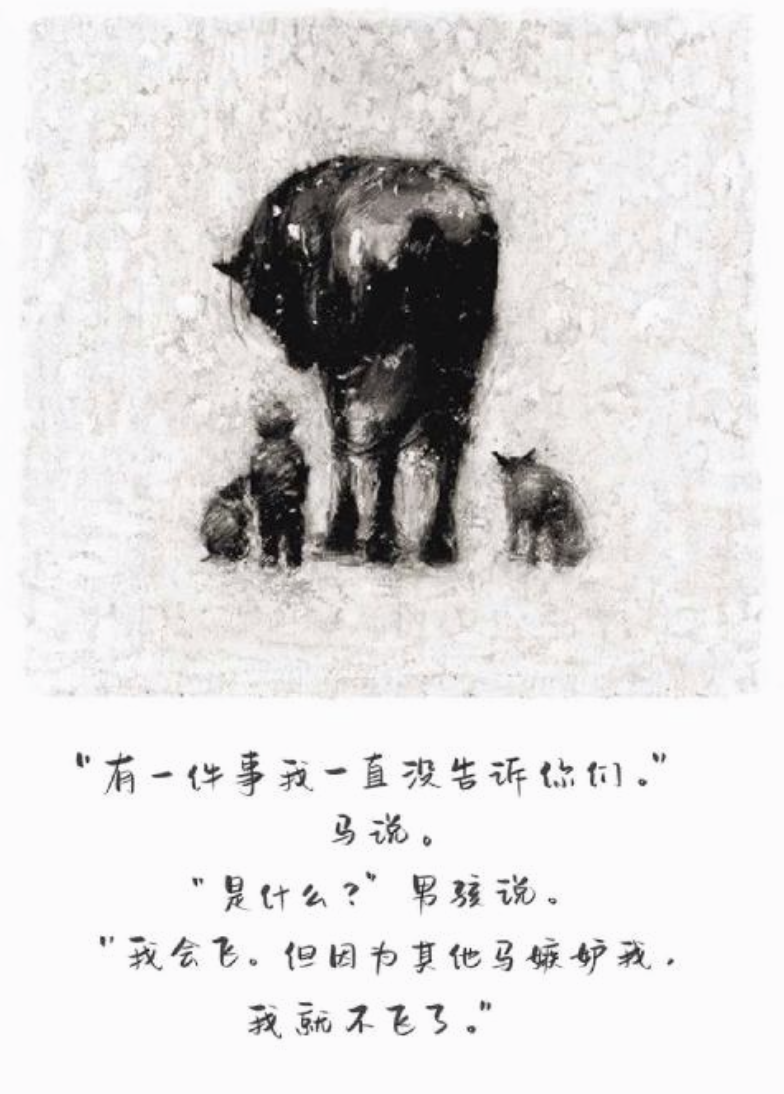 "有一件事我一直没告诉你们。"
马说。
"是什么？" 男孩说。
"我会飞。但因为其他马嫉妒我，
我就不飞了。"